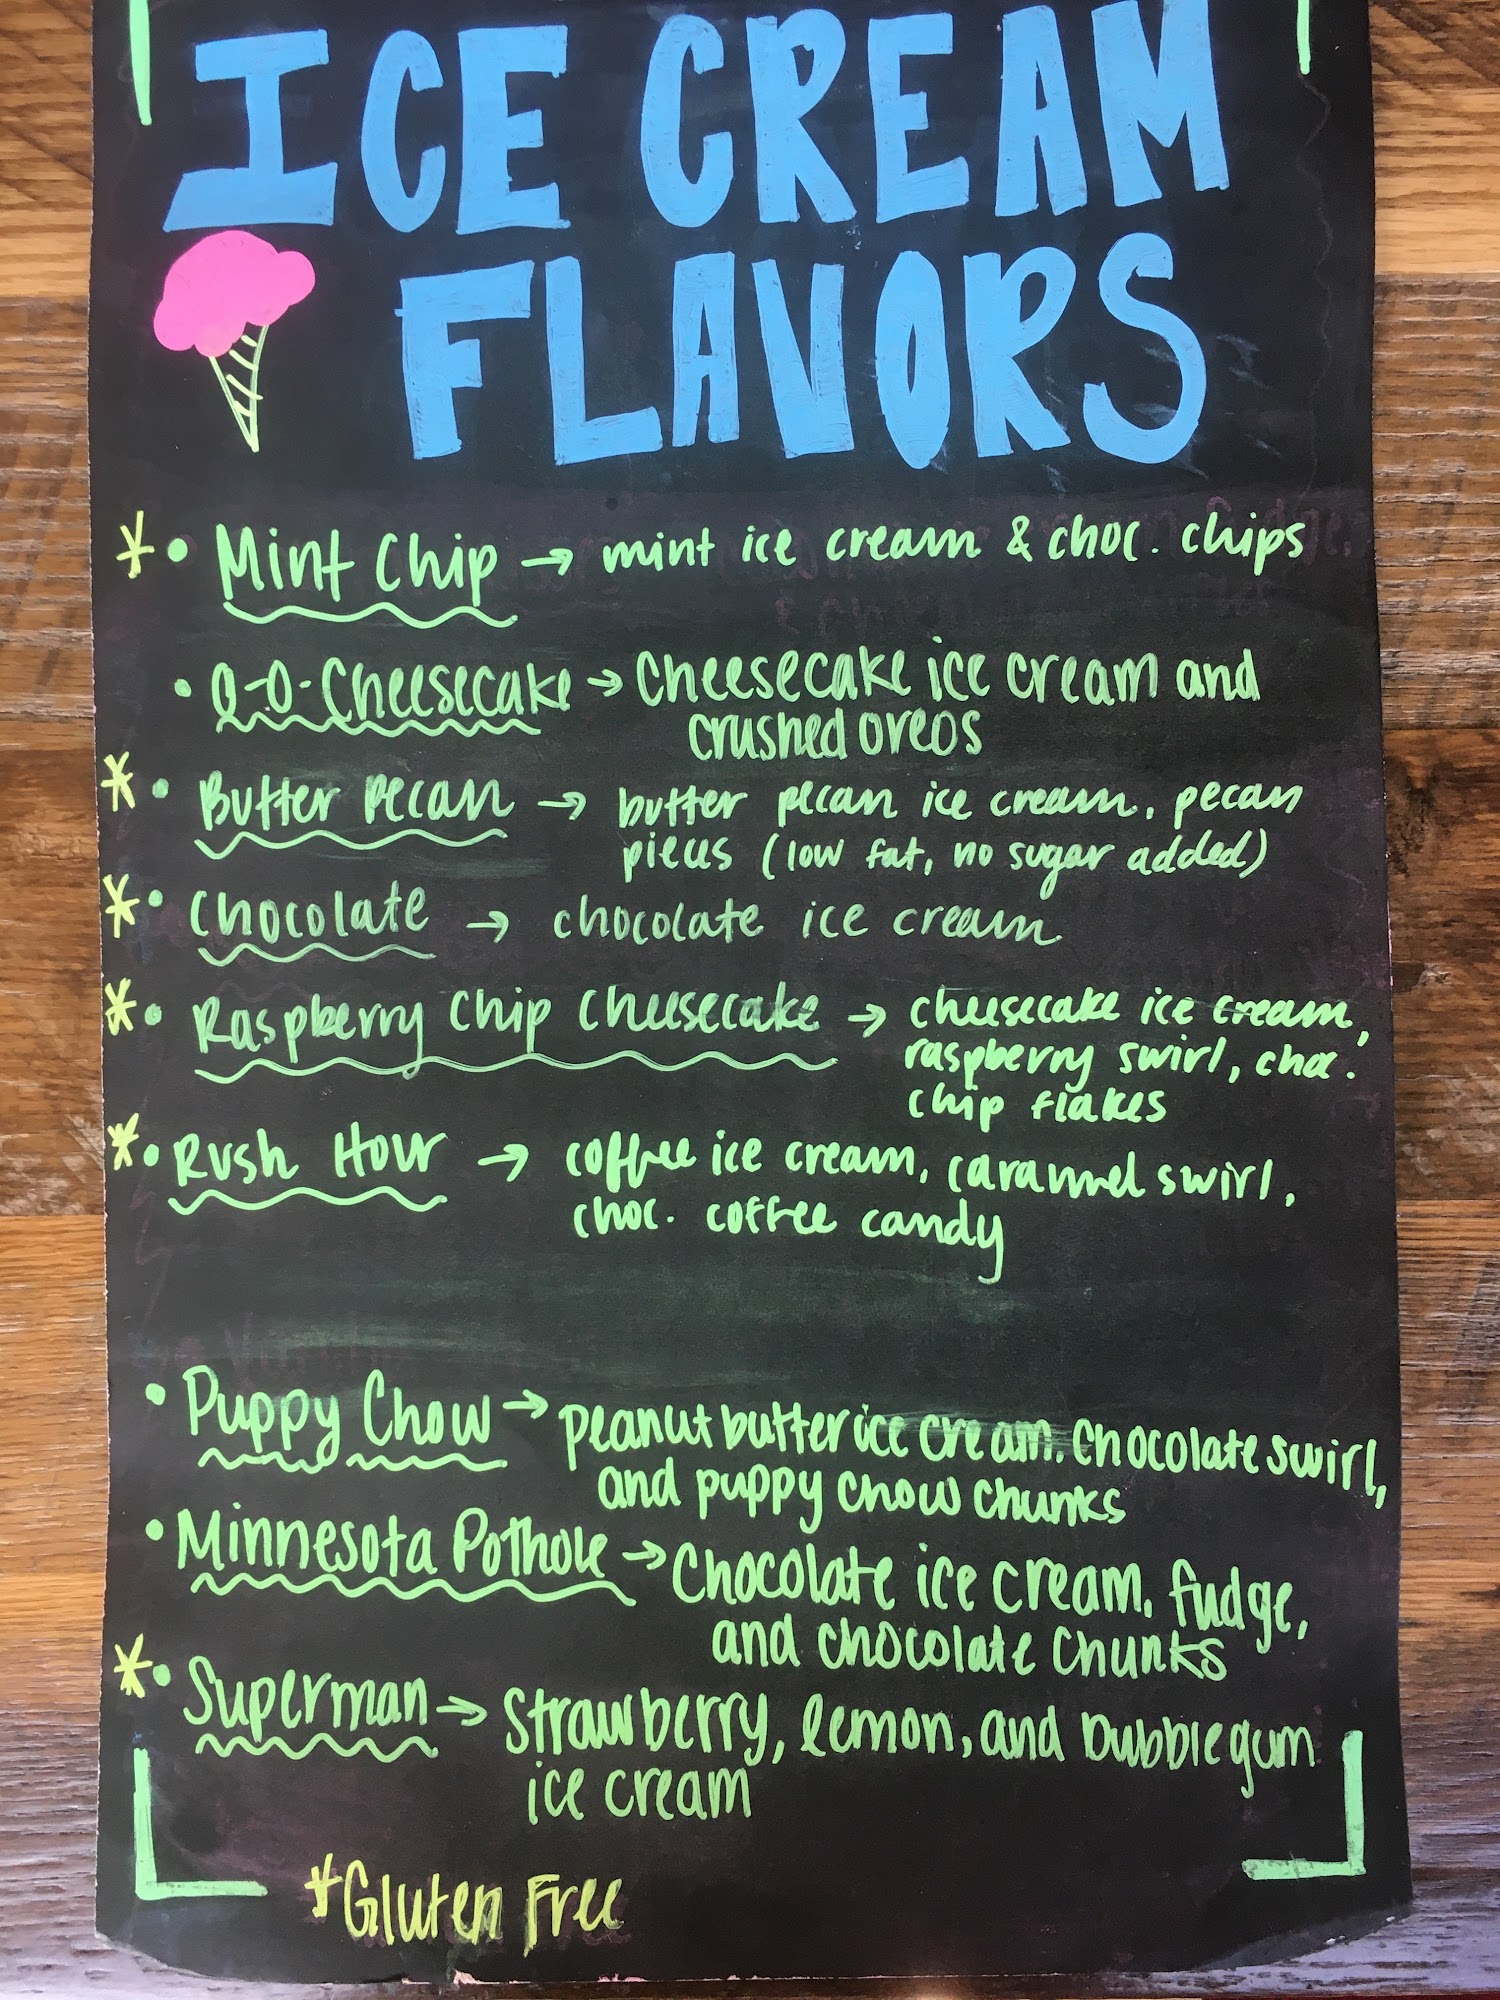 ICE CREAM
FLAVORS
* • Mint Chip → mint ice cream & choc. chips
• O-O-Cheesecake → Cheesecake ice cream and
crushed oreos
* • Butter Pecan → butter pecan ice cream, pecan
pieces (low fat, no sugar added)
* • Chocolate → chocolate ice cream
* • Raspberry Chip Cheesecake → cheesecake ice cream,
raspberry swirl, choc.
chip flakes
* • Rush Hour → coffee ice cream, caramel swirl,
choc. coffee candy
• Puppy Chow → peanut butter ice cream, chocolate swirl,
and puppy chow chunks
• Minnesota Pothole → Chocolate ice cream, fudge,
and chocolate chunks
* • Superman → Strawberry, lemon, and bubblegum
ice cream
*Gluten Free